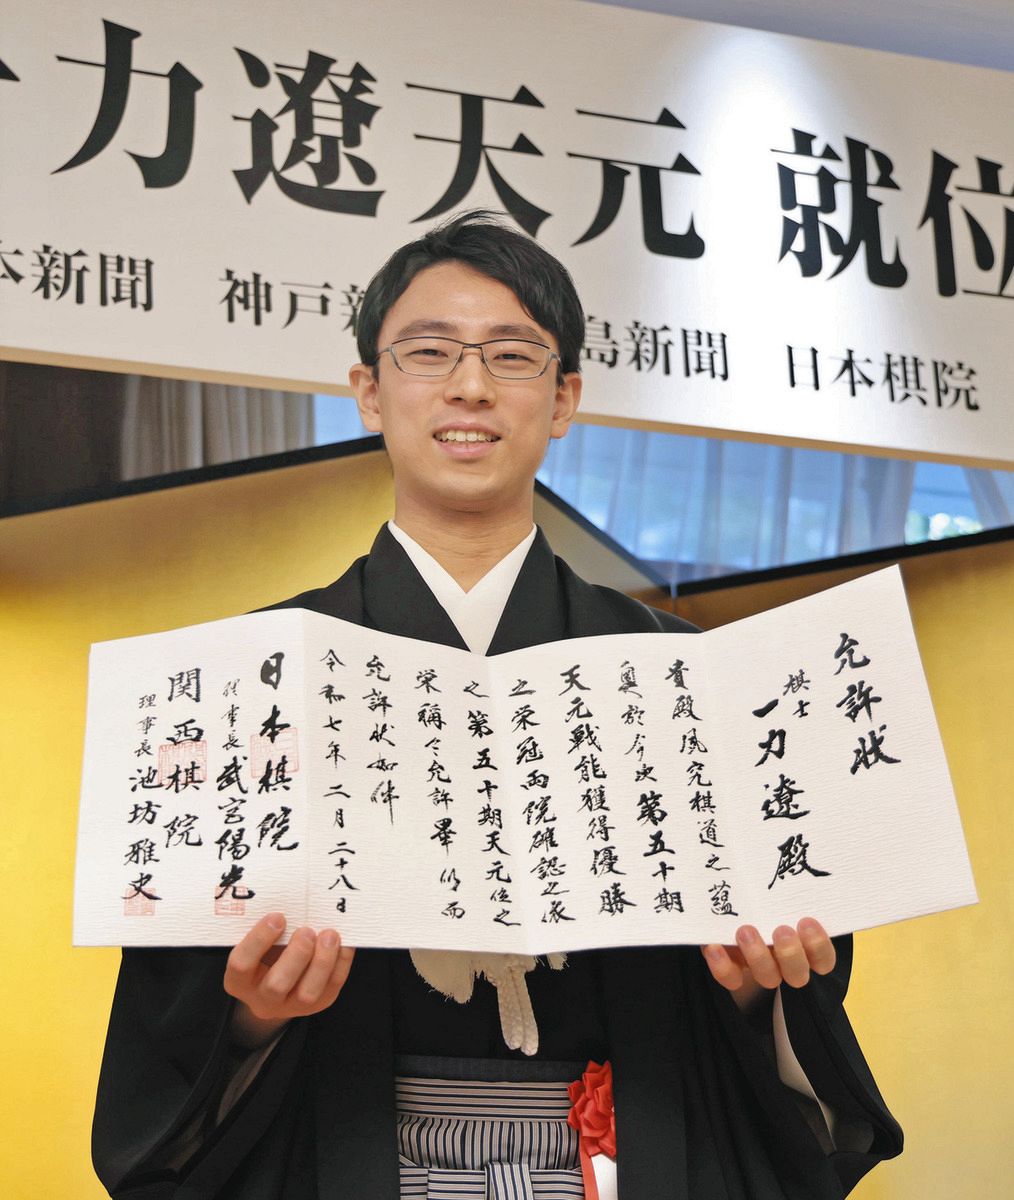 一力遼天元 就位
本新聞 神戸新 島新聞 日本棋院
允許状
棋士 一力遼殿
貴殿夙究棋道之蘊
奥於今次第五十期
天元戦能獲得優勝
之栄冠両院確認之依
之第五十期天元位之
栄稱令允許畢仍而
允許状如件
令和七年二月二十八日
日本棋院
理事長 武宮陽光
関西棋院
理事長 池坊雅史